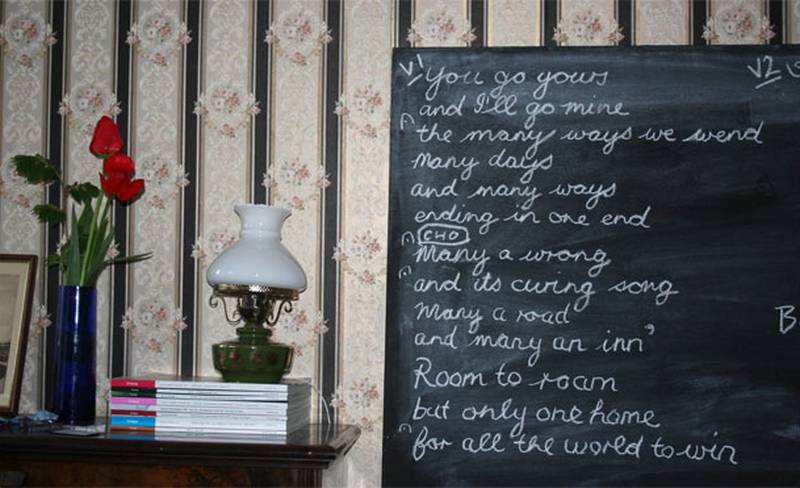 V1
You go yours
and I'll go mine
the many ways we wend
many days
and many ways
ending in one end
CHO
Many a wrong
and its curing song
many a road
and many an inn
Room to roam
but only one home
for all the world to win
V2
B